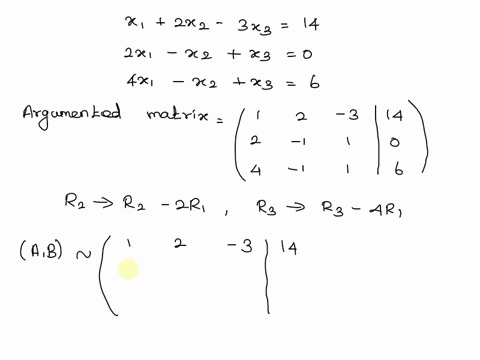 x₁ + 2x₂ - 3x₃ = 14
2x₁ - x₂ + x₃ = 0
4x₁ - x₂ + x₃ = 6
Argumented matrix = ( 1 2 -3 | 14
2 -1 1 | 0
4 -1 1 | 6 )
R₂ → R₂ - 2R₁ , R₃ → R₃ - 4R₁
(A,B) ~ ( 1 2 -3 | 14